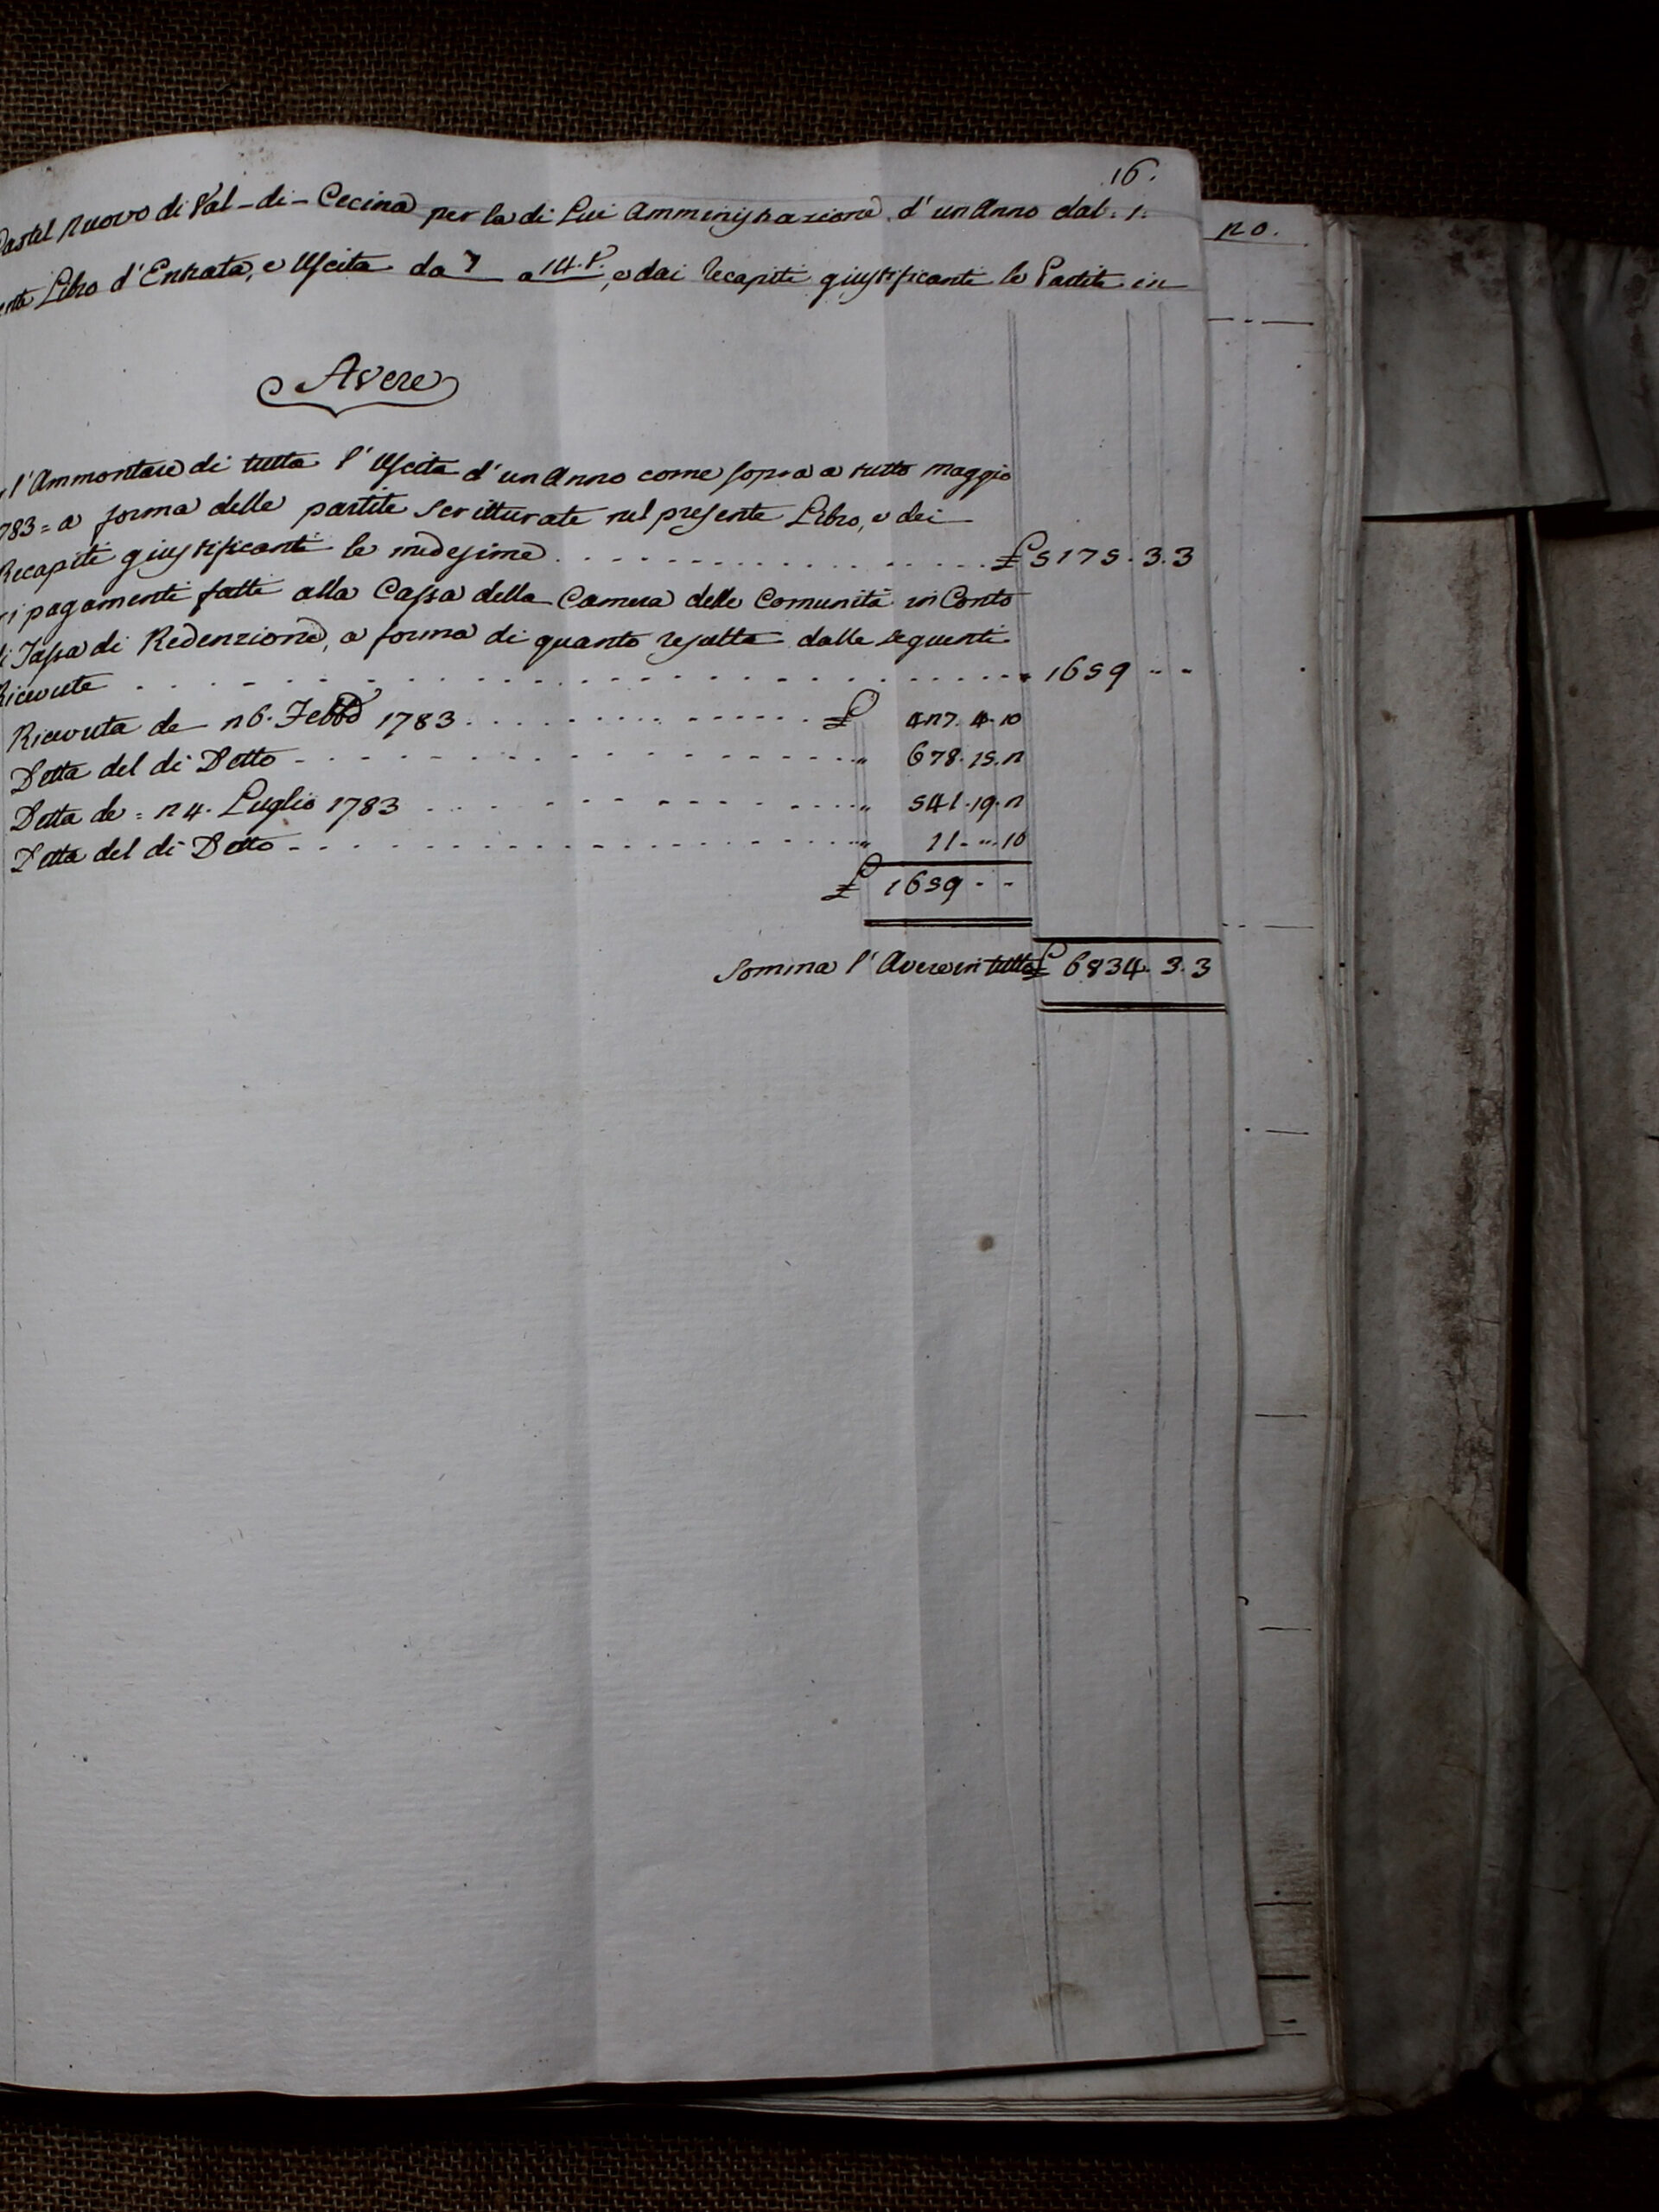 16.
Castel Nuovo di Val-di-Cecina per la di Lui Amministrazione d'un Anno dal. 1.
20.
Libro d'Entrata, e Uscita da 7 a 14. P., e dai Recapiti giustificanti le Partite in
Avere
l'Ammontare di tutta l'Uscita d'un Anno come sopra a tutto Maggio
783 = a forma delle partite scritturate nel presente Libro, e dei
Recapiti giustificanti le medesime . . . . . . . . . . . . . . . . £ 5175. 3. 3
i pagamenti fatti alla Cassa della Camera delle Comunità in Conto
di Tassa di Redenzione, a forma di quanto resulta dalle seguenti
Ricevute . . . . . . . . . . . . . . . . . . . . . . . . . . 1659 - -
Ricevuta de 26. Febb.o 1783 . . . . . . . . . . . . £ 427. 4. 10
Detta del dì Detto - . . . . . . . . . . . . . . . . . " 678. 15. 2
Detta de = 24. Luglio 1783 . . . . . . . . . . . . " 541. 19. 2
Detta del dì Detto - . . . . . . . . . . . . . . . . . " 11. - " 10
£ 1659 - -
Somma l'Avere in tutto £ 6834. 3. 3